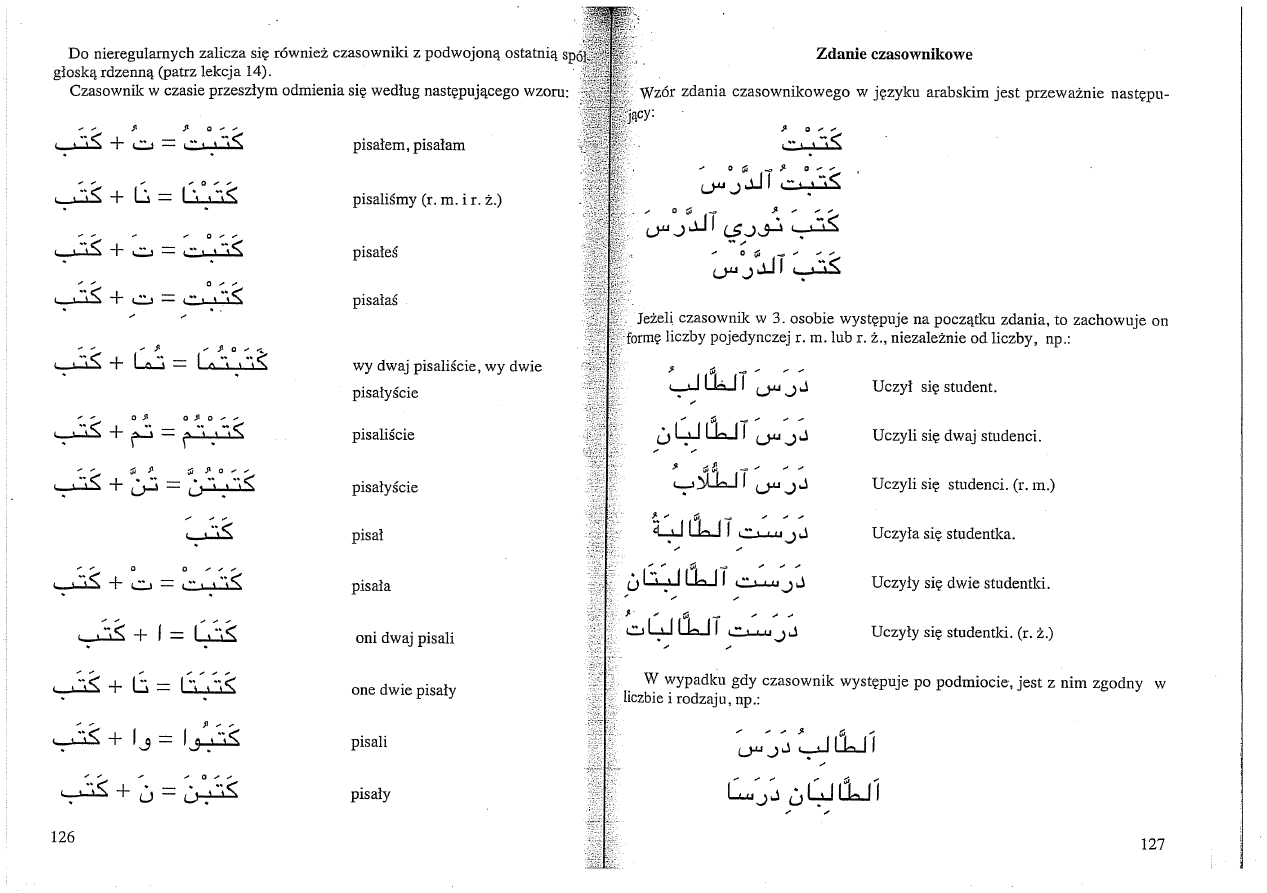 Do nieregularnych zalicza się również czasowniki z podwojoną ostatnią spół-
głoską rdzenną (patrz lekcja 14).
Czasownik w czasie przeszłym odmienia się według następującego wzoru:
كَتَبْتُ = تُ + كَتَب pisałem, pisałam
كَتَبْنَا = نَا + كَتَب pisaliśmy (r. m. i r. ż.)
كَتَبْتَ = تَ + كَتَب pisałeś
كَتَبْتِ = تِ + كَتَب pisałaś
كَتَبْتُمَا = تُمَا + كَتَب wy dwaj pisaliście, wy dwie
pisałyście
كَتَبْتُمْ = تُمْ + كَتَب pisaliście
كَتَبْتُنَّ = تُنَّ + كَتَب pisałyście
كَتَبَ pisał
كَتَبَتْ = تْ + كَتَب pisała
كَتَبَا = ا + كَتَب oni dwaj pisali
كَتَبَتَا = تَا + كَتَب one dwie pisały
كَتَبُوا = وا + كَتَب pisali
كَتَبْنَ = نَ + كَتَب pisały
126
Zdanie czasownikowe
Wzór zdania czasownikowego w języku arabskim jest przeważnie następu-
jący:
كَتَبْتُ
كَتَبْتُ ٱلدَّرْسَ
كَتَبَ نُورِي ٱلدَّرْسَ
كَتَبَ ٱلدَّرْسَ
Jeżeli czasownik w 3. osobie występuje na początku zdania, to zachowuje on
formę liczby pojedynczej r. m. lub r. ż., niezależnie od liczby, np.:
دَرَسَ ٱلطَّالِبُ Uczył się student.
دَرَسَ ٱلطَّالِبَانِ Uczyli się dwaj studenci.
دَرَسَ ٱلطُّلَّابُ Uczyli się studenci. (r. m.)
دَرَسَتِ ٱلطَّالِبَةُ Uczyła się studentka.
دَرَسَتِ ٱلطَّالِبَتَانِ Uczyły się dwie studentki.
دَرَسَتِ ٱلطَّالِبَاتُ Uczyły się studentki. (r. ż.)
W wypadku gdy czasownik występuje po podmiocie, jest z nim zgodny w
liczbie i rodzaju, np.:
اَلطَّالِبُ دَرَسَ
اَلطَّالِبَانِ دَرَسَا
127